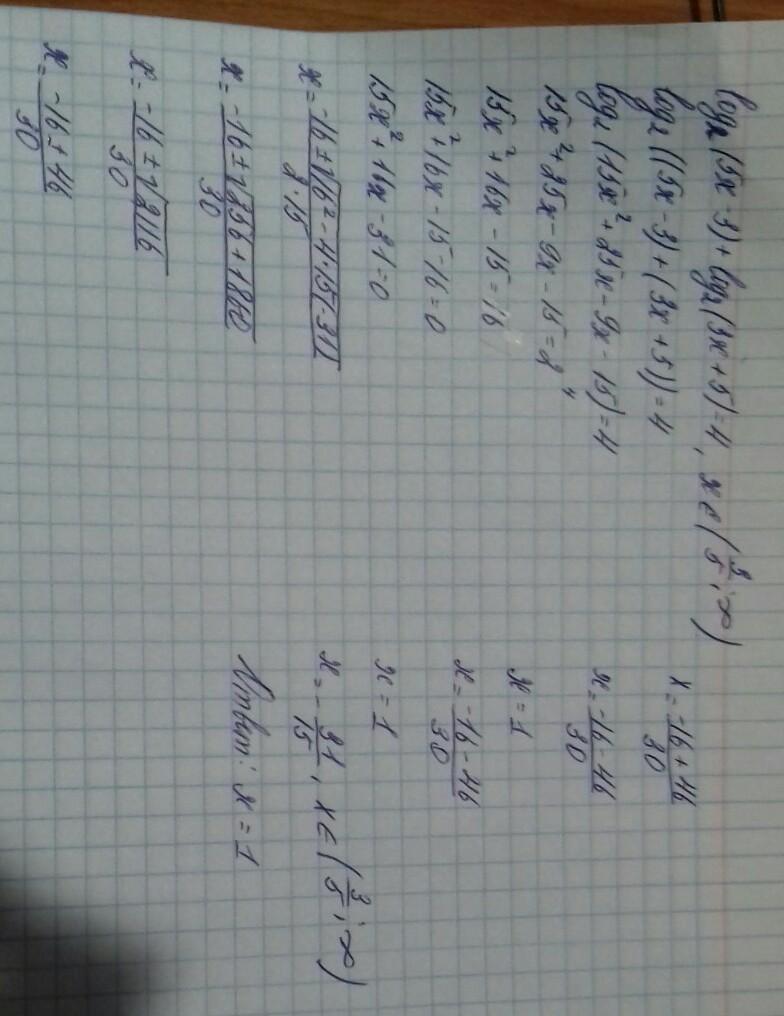 log₂(5x-3)+log₂(3x+5)=4, x∈(3/5; ∞)
log₂((5x-3)+(3x+5))=4
log₂(15x²+25x-9x-15)=4
15x²+25x-9x-15=2⁴
15x²+16x-15=16
15x²+16x-15-16=0
15x²+16x-31=0
x=(-16±√(16²-4·15(-31)))/(2·15)
x=(-16±√(256+1860))/30
x=(-16±√2116)/30
x=(-16±46)/30
x=(-16+46)/30
x=(-16-46)/30
x=1
x=(-16-46)/30
x=1
x=-31/15, x∈(3/5; ∞)
Ответ: x=1